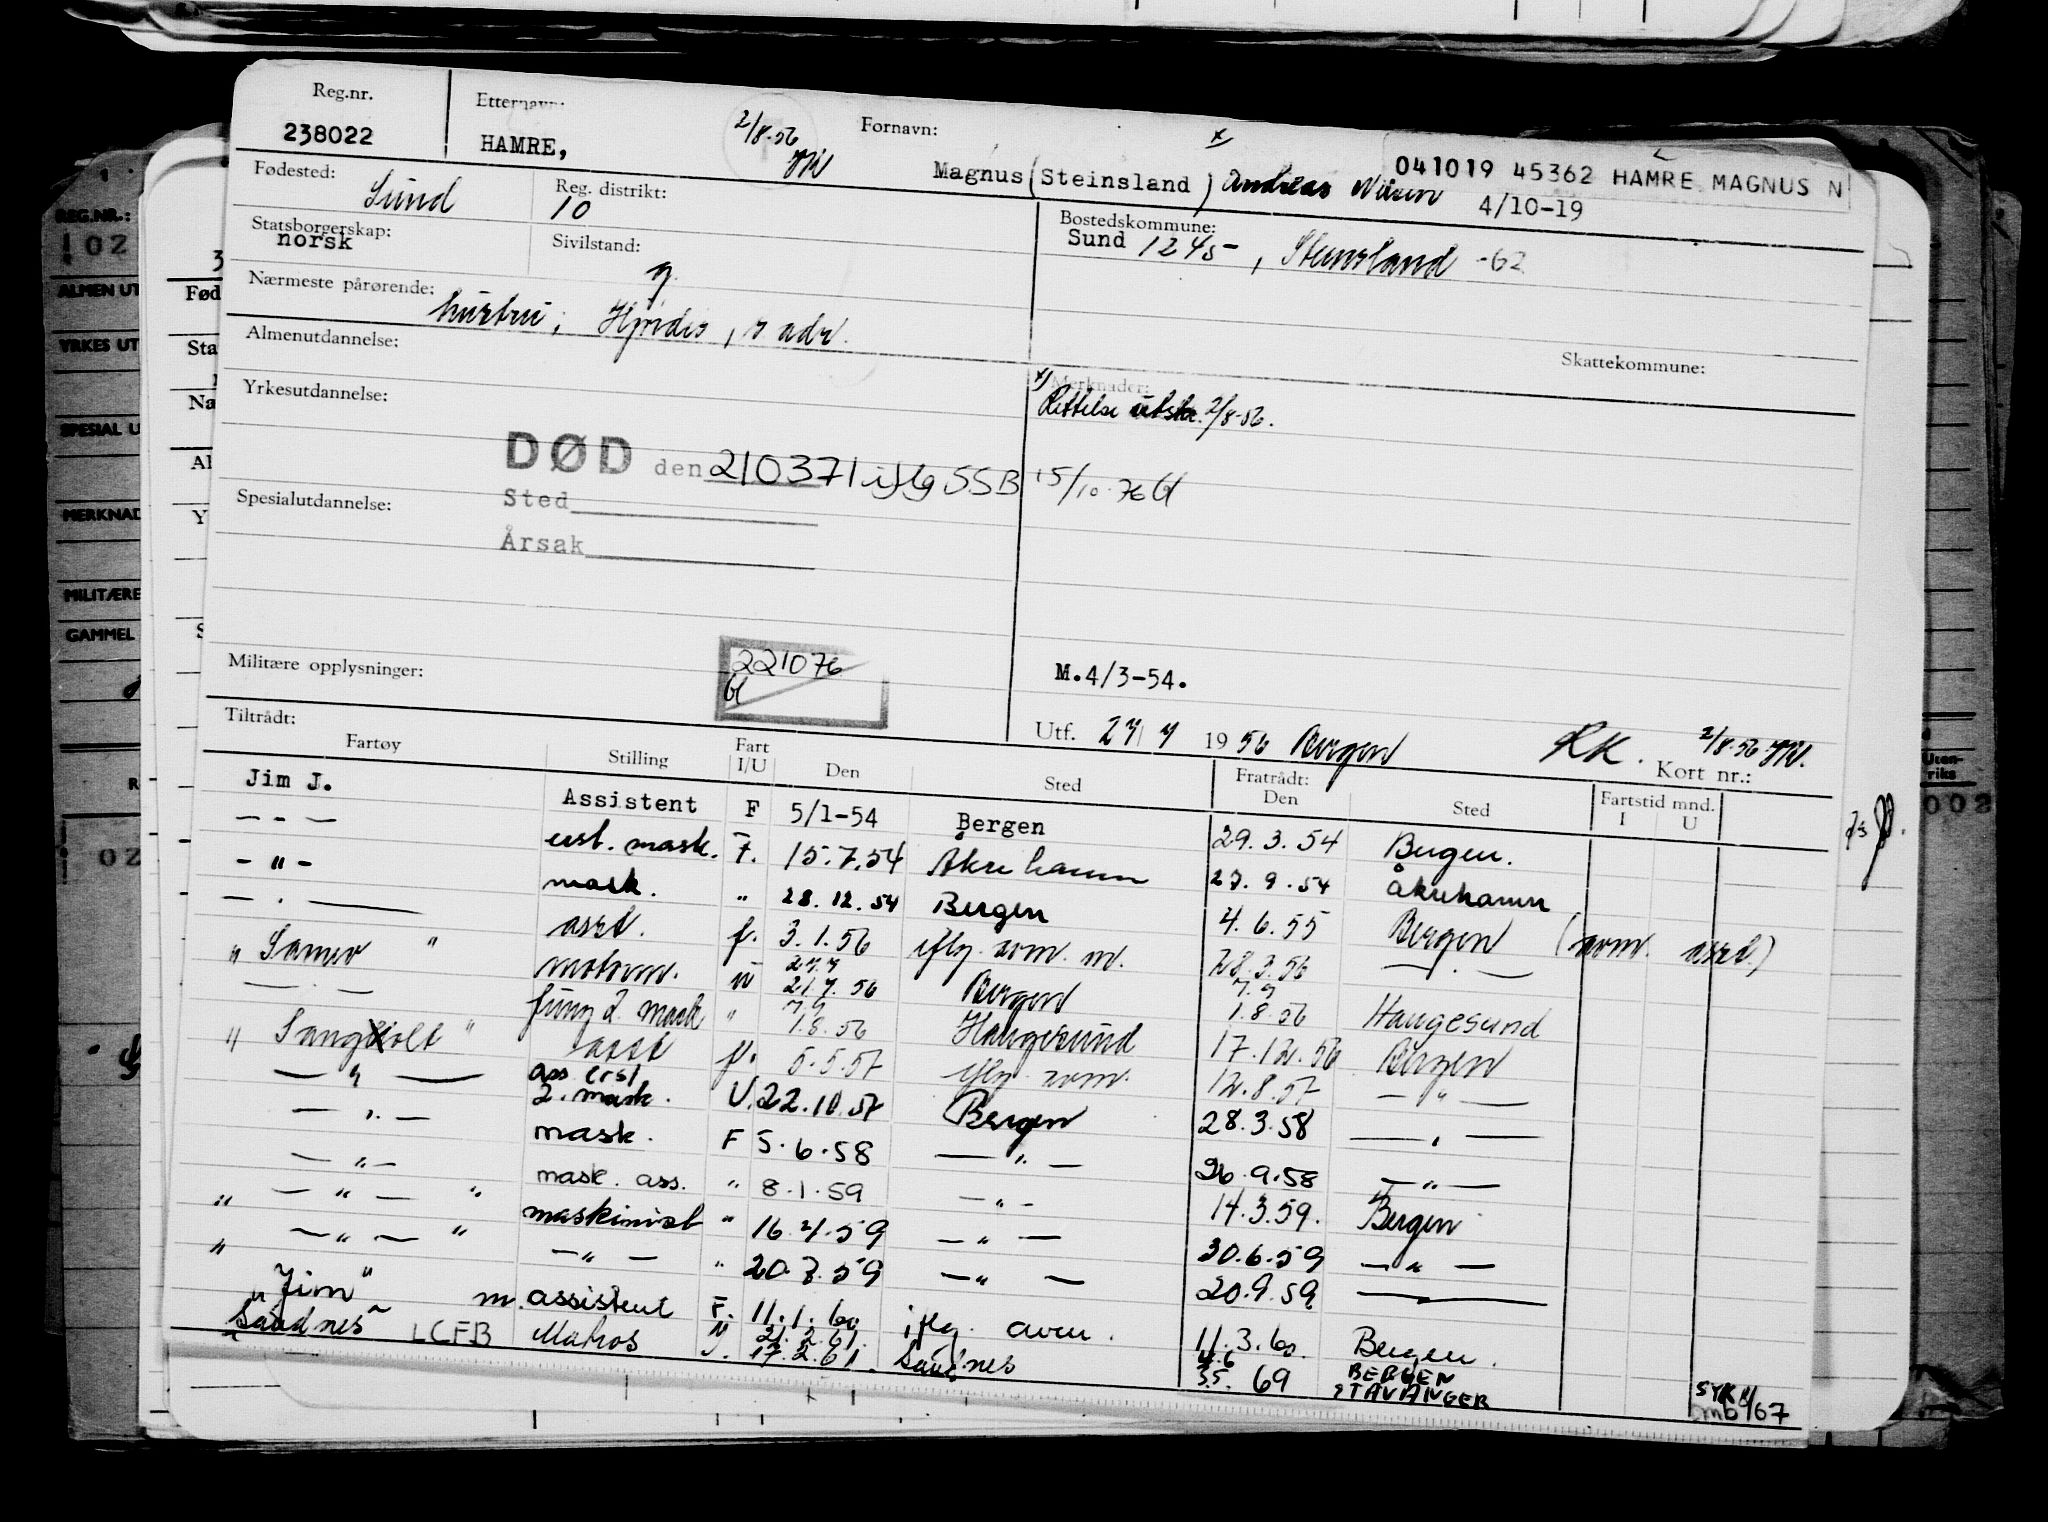 Reg.nr. Etternavn: 2/8-56 Fornavn:
238022 HAMRE, Magnus (Steinsland) Andreas Nilsen 4/10-19
041019 45362 HAMRE MAGNUS N
Fødested: Sund Reg. distrikt: 10
Bostedskommune: Sund 1245, Steinsland -62
Statsborgerskap: norsk Sivilstand: g.
Nærmeste pårørende: hustru, Hjørdis, s adr.
Almenutdannelse: Skattekommune:
Yrkesutdannelse: x) Merknader:
Rettelse utskr. 2/8-56.
DØD den 210371 iflg SSB 15/10-76 bl
Spesialutdannelse: Sted
Årsak
221076
bl
Militære opplysninger: M.4/3-54.
Tiltrådt: Utf. 27/7 1956 Bergen RK. 2/8-56
Kort nr.:
Fartøy Stilling Fart I/U Den Sted Fratrådt: Den Sted Fartstid mnd. I U
Jim J. Assistent F 5/1-54 Bergen 29.3.54 Bergen.
- - - erst. mask. F. 15.7.54 Åkrehamn 27.9.54 Åkrehamn
- " - mask. " 28.12.54 Bergen 4.6.55 Bergen (som asst.)
- . - asst. f. 3.1.56 iflg. som. m. 28.3.56 - . -
" Samuo " motorm. U 27.7 21.7.56 Bergen 7.9 1.8.56 Haugesund
- . - fung 2. mask " 7.9 1.8.56 Haugesund 17.12.56 Bergen
" Sangolt " asst f. 5.5.57 iflg. som. 12.8.57 - " -
- " - ass. erst 2. mask. U. 22.10.57 Bergen 28.3.58 - . -
- " - mask. F 5.6.58 - " - 26.9.58 - " -
- " - mask. ass. " 8.1.59 - " - 14.3.59. Bergen
" - " - " maskinist " 16.4.59 - " - 30.6.59 - " -
" - " - " - " - " 20.7.59 - " - 20.9.59 -
"Jim" m. assistent F. 11.1.60 iflg. aven. 11.3.60. Bergen.
"Sandnes" LCFB Matros 21.2.61. 17.2.61. Sandnes 4.6 3.5. 69 BERGEN STAVANGER
SYK
mb /67
REG.NR.:
ALMEN UT
YRKES UT
SPESIAL U
MERKNAD
MILITÆRE
GAMMEL